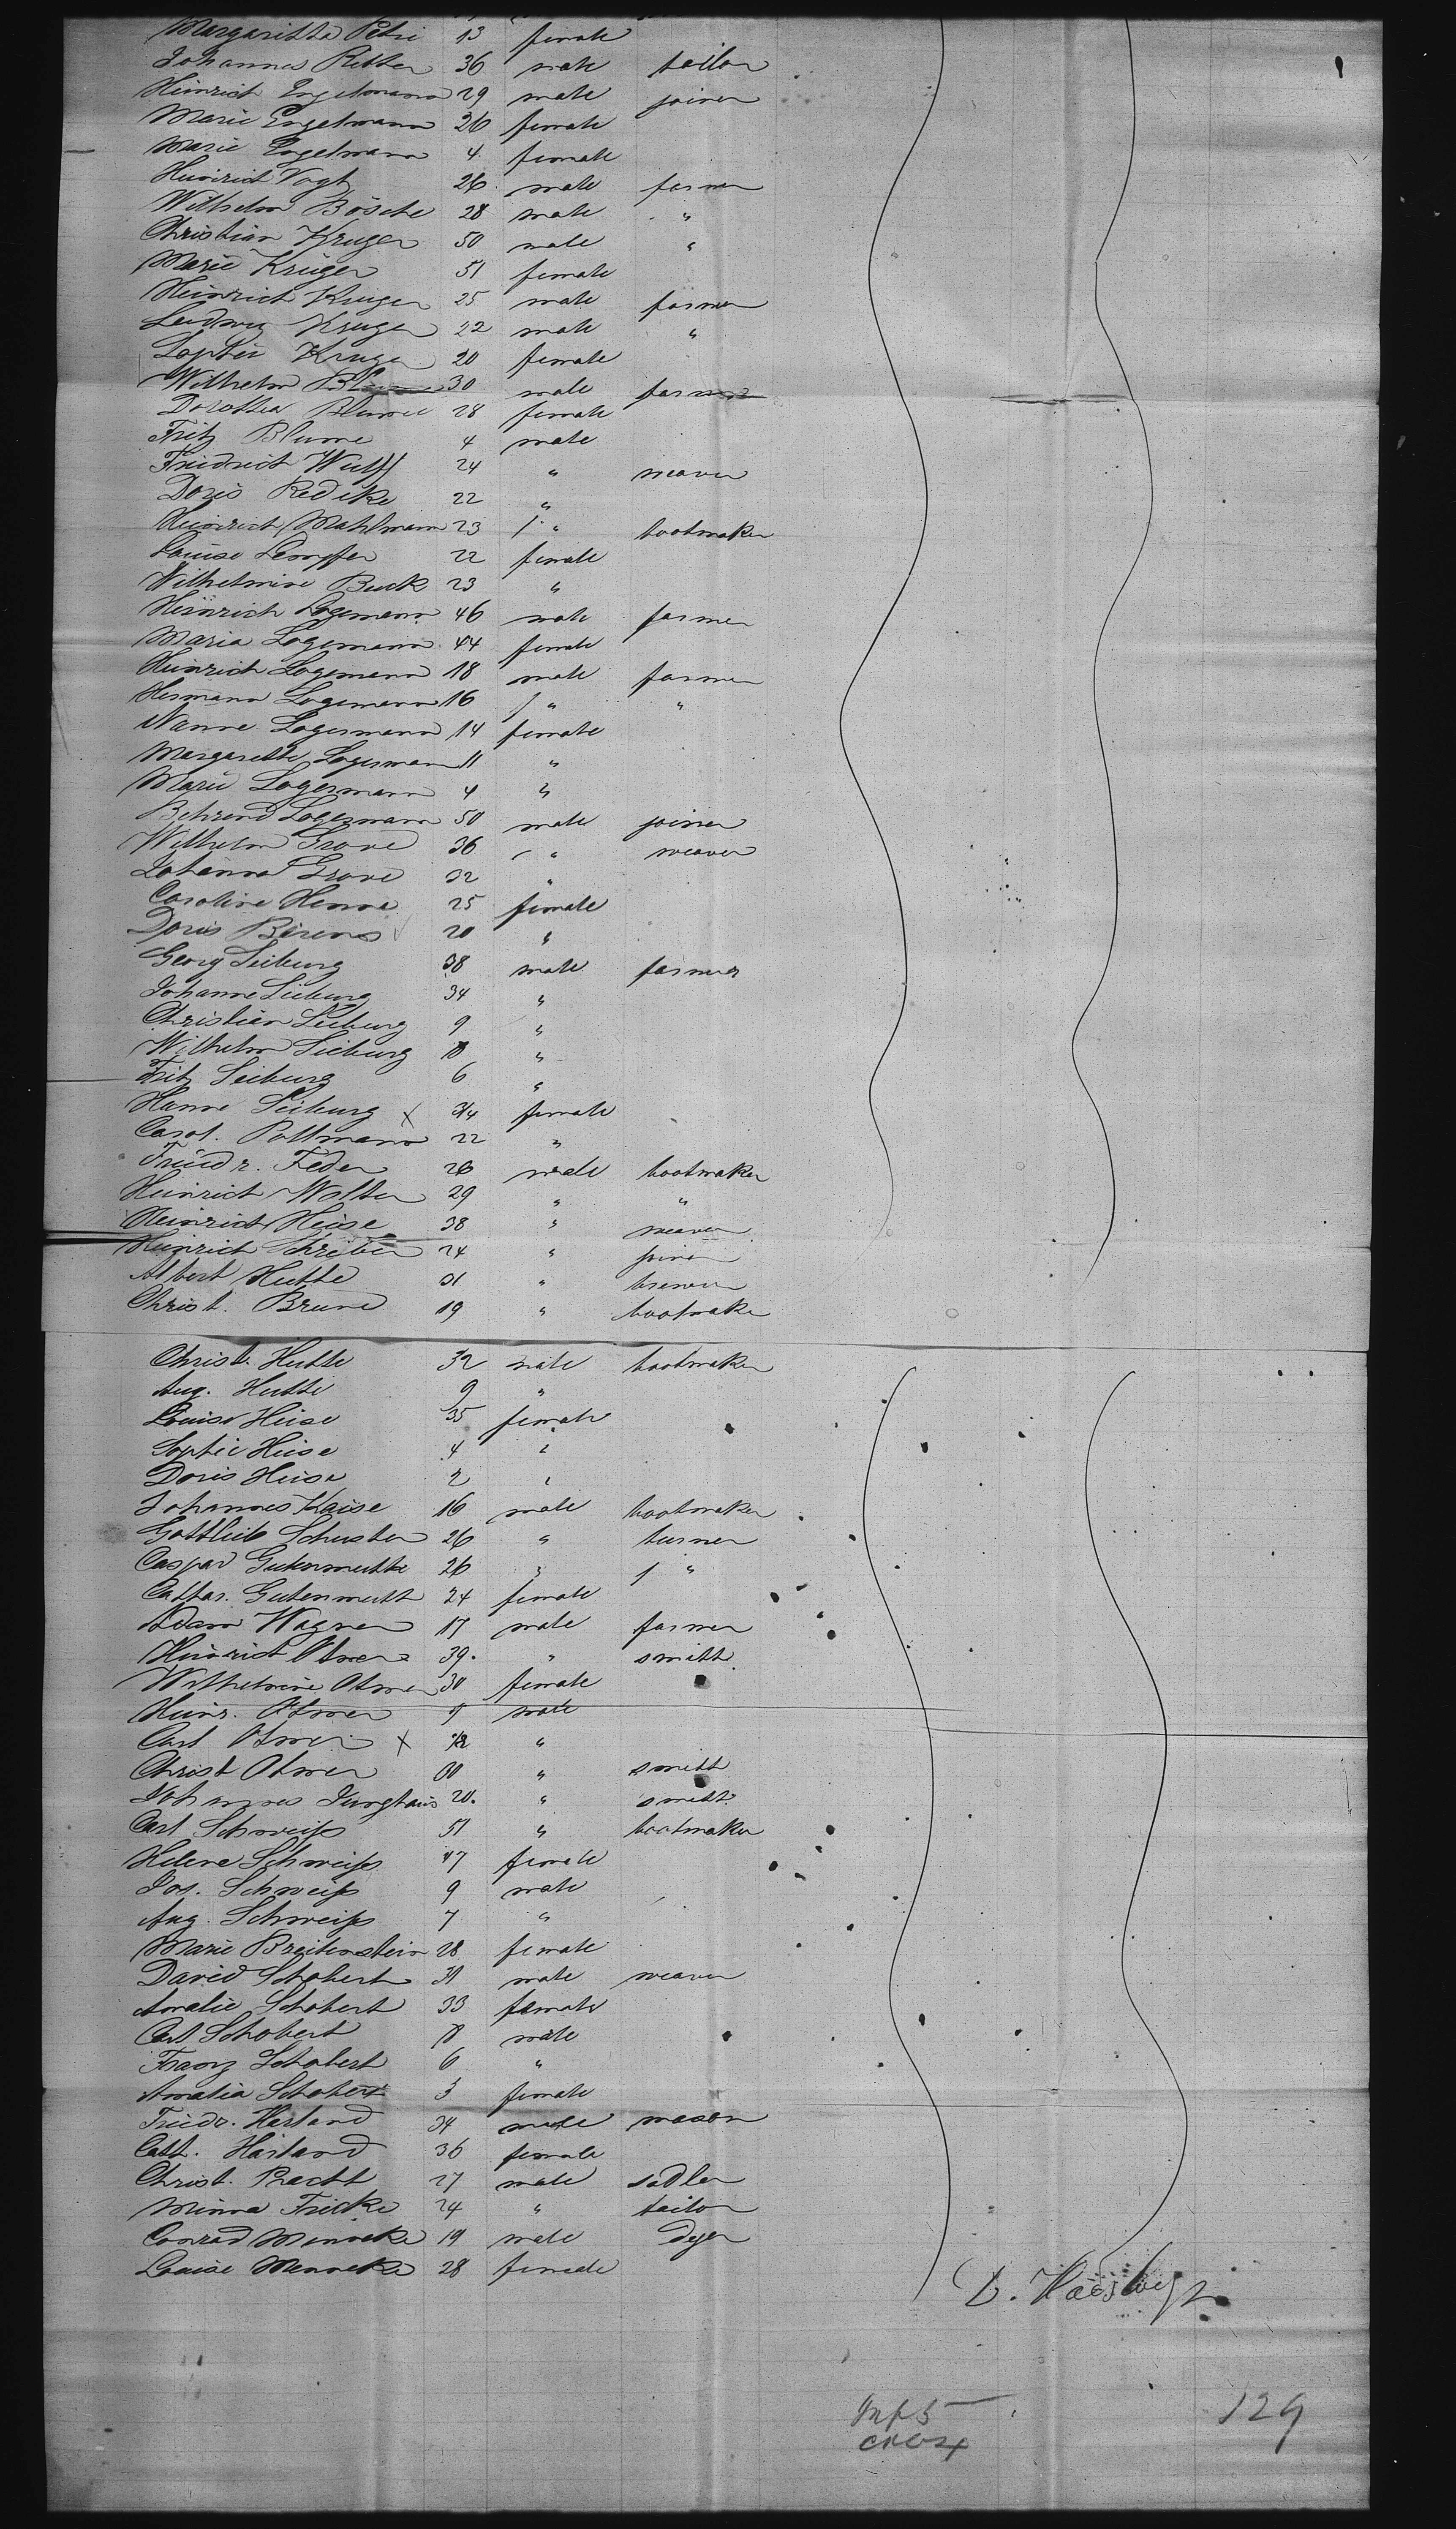 Margaretta Petri 13 female
Johannes Ritter 36 male tailor
Heinrich Engelmann 29 male joiner
Marie Engelmann 26 female
Marie Engelmann 4 female
Heinrich Vogt 26 male farmer
Wilhelm Bösche 28 male "
Christian Kruger 50 male "
Marie Krüger 51 female
Heinrich Kruger 25 male farmer
Ludwig Kruger 22 male "
Sophie Kruge 20 female
Wilhelm Blume 30 male farmer
Dorothea Blume 28 female
Fritz Blume 4 male
Friedrich Wulff 24 " weaver
Doris Redeke 22 "
Heinrich Mahlmann 23 " bootmaker
Louise Lempfer 22 female
Wilhelmine Buck 23 "
Heinrich Logemann 46 male farmer
Maria Logemann 44 female
Heinrich Logemann 18 male farmer
Hermann Logemann 16 " "
Nanne Logermann 14 female
Margarethe Logerman 11 "
Marie Logermann 4 "
Behrend Logermann 50 male joiner
Wilhelm Grove 36 " weaver
Johanna Grove 32 "
Caroline Henne 25 female
Doris Behrens 20 "
Georg Seeburg 38 male farmer
Johanne Seeburg 34 "
Christian Seeburg 9 "
Wilhelm Seeburg 8 "
Fritz Seeburg 6 "
Hanne Seeburg X 3/4 female
Carol. Pottmann 22 "
Friedr. Feder 26 male bootmaker
Heinrich Wolter 29 " "
Heinrich Heise 38 " weaver
Heinrich Schriber 24 " joiner
Albert Hutte 31 " brewer
Christ. Brune 19 " bootmaker
Christ. Hutte 32 male bootmaker
Aug. Hutte 9 "
Louise Heise 35 female
Sophie Heise 4 "
Doris Heise 2 "
Johannes Kaise 16 male bootmaker
Gottlieb Schuster 26 " turner
Caspar Gutenmuth 26 " "
Cathar. Gutenmuth 24 female
Adam Wagner 17 male farmer
Heinrich Otmer 39. " smith
Wilhelmine Otmer 30 female
Heinr. Otmer 9 male
Carl Otmer X "
Christ Otmer " smith
Johannes Junghans 20. " smith
Carl Schweiss 51 " bootmaker
Helene Schweiss 47 female
Jos. Schweiss 9 male
Aug. Schweiss 7 "
Marie Breitenstein 28 female
David Schobert 31 male weaver
Amalie Schobert 33 female
Carl Schobert 8 male
Franz Schobert 6 "
Amalia Schobert 3 female
Friedr. Harland 34 male mason
Cath. Harland 36 female
Christ. Pracht 27 male sadler
Minna Fricke 24 " tailor
Conrad Manneke 19 male dyer
Louise Manneke 28 female
129